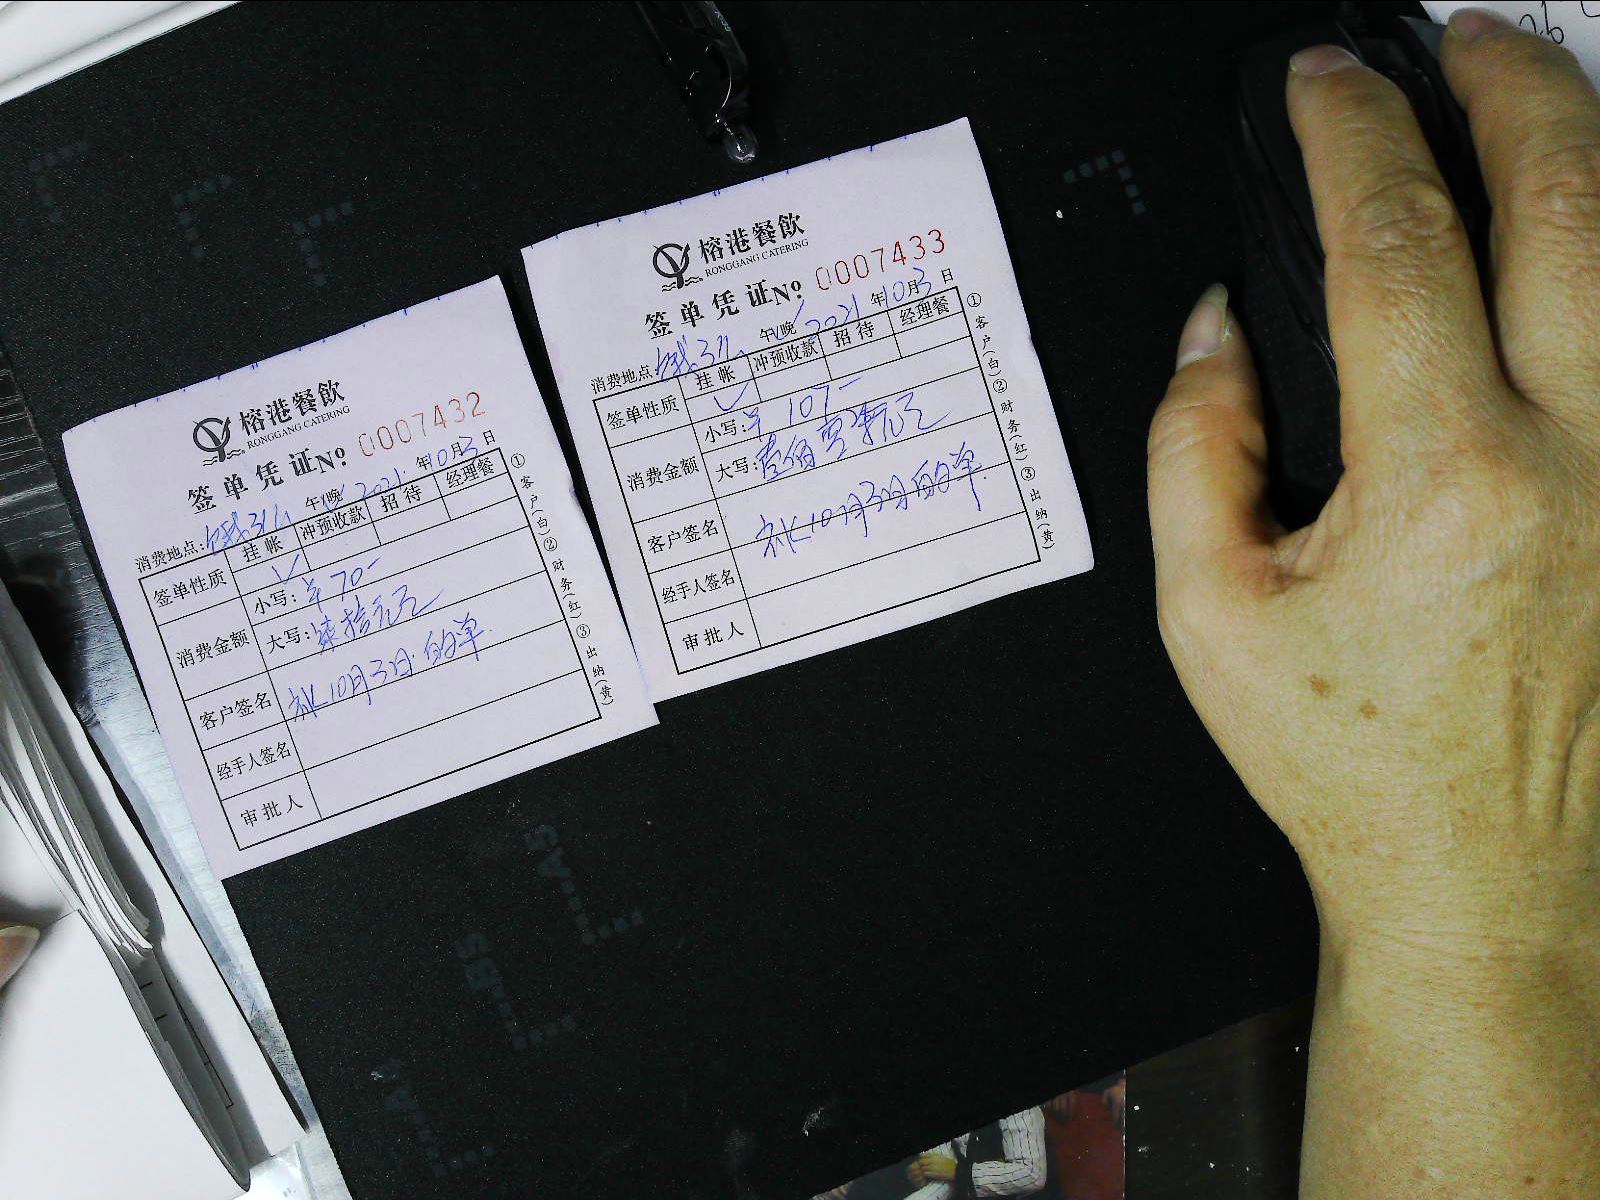 榕港餐飲
RONGGANG CATERING
签单凭证No. 0007432
消费地点: 午/晚 2021年10月3日
签单性质 挂帐 冲预收款 招待 经理餐
✓
消费金额 小写:¥70-
大写:柒拾元正
客户签名 补10月3日的单.
经手人签名
审批人
①客户(白)②财务(红)③出纳(黄)
榕港餐飲
RONGGANG CATERING
签单凭证No. 0007433
消费地点: 午/晚 2021年10月3日
签单性质 挂帐 冲预收款 招待 经理餐
✓
消费金额 小写:¥107-
大写:壹佰零柒元正
客户签名 补10月3日的单.
经手人签名
审批人
①客户(白)②财务(红)③出纳(黄)
26